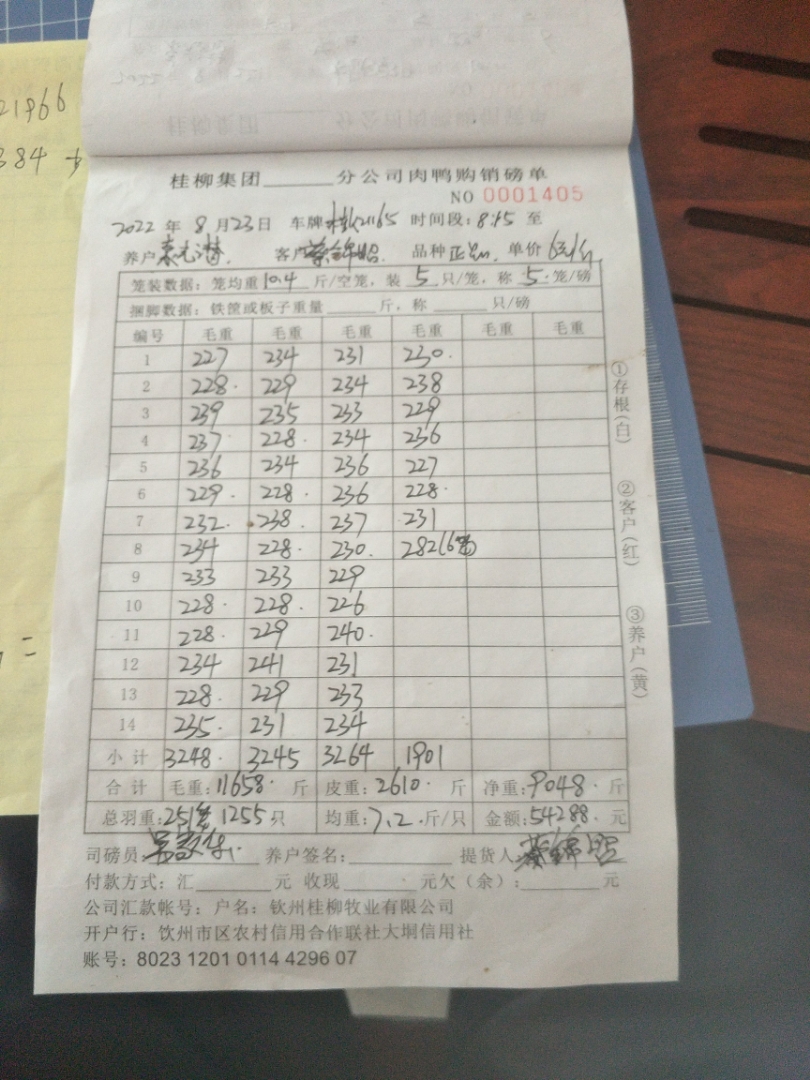 21966
384
桂柳集团______分公司肉鸭购销磅单
NO 0001405
2022 年 8 月 23 日 车牌 21165 时间段: 8:15 至
养户 客户 品种 正品 单价 6元/斤
笼装数据: 笼均重 10.4 斤/空笼, 装 5 只/笼, 称 5 笼/磅
捆脚数据: 铁筐或板子重量______斤, 称______只/磅
编号 毛重 毛重 毛重 毛重 毛重 毛重
1 227 234 231 230
2 228 229 234 238
3 239 235 233 229
4 237 228 234 236
5 236 234 236 227
6 229 228 236 228
7 232 238 237 231
8 234 228 230 282(6笼)
9 233 233 229
10 228 228 226
11 228 229 240
12 234 241 231
13 228 229 233
14 235 231 234
小计 3248 3245 3264 1901
合计 毛重: 11658 斤 皮重: 2610 斤 净重: 9048 斤
总羽重: 251笼 1255 只 均重: 7.2 斤/只 金额: 54288 元
司磅员: 养户签名:______ 提货人
付款方式: 汇______元 收现______元欠(余):______元
公司汇款帐号: 户名: 钦州桂柳牧业有限公司
开户行: 饮州市区农村信用合作联社大垌信用社
账号: 8023 1201 0114 4296 07
①存根(白)
②客户(红)
③养户(黄)
=